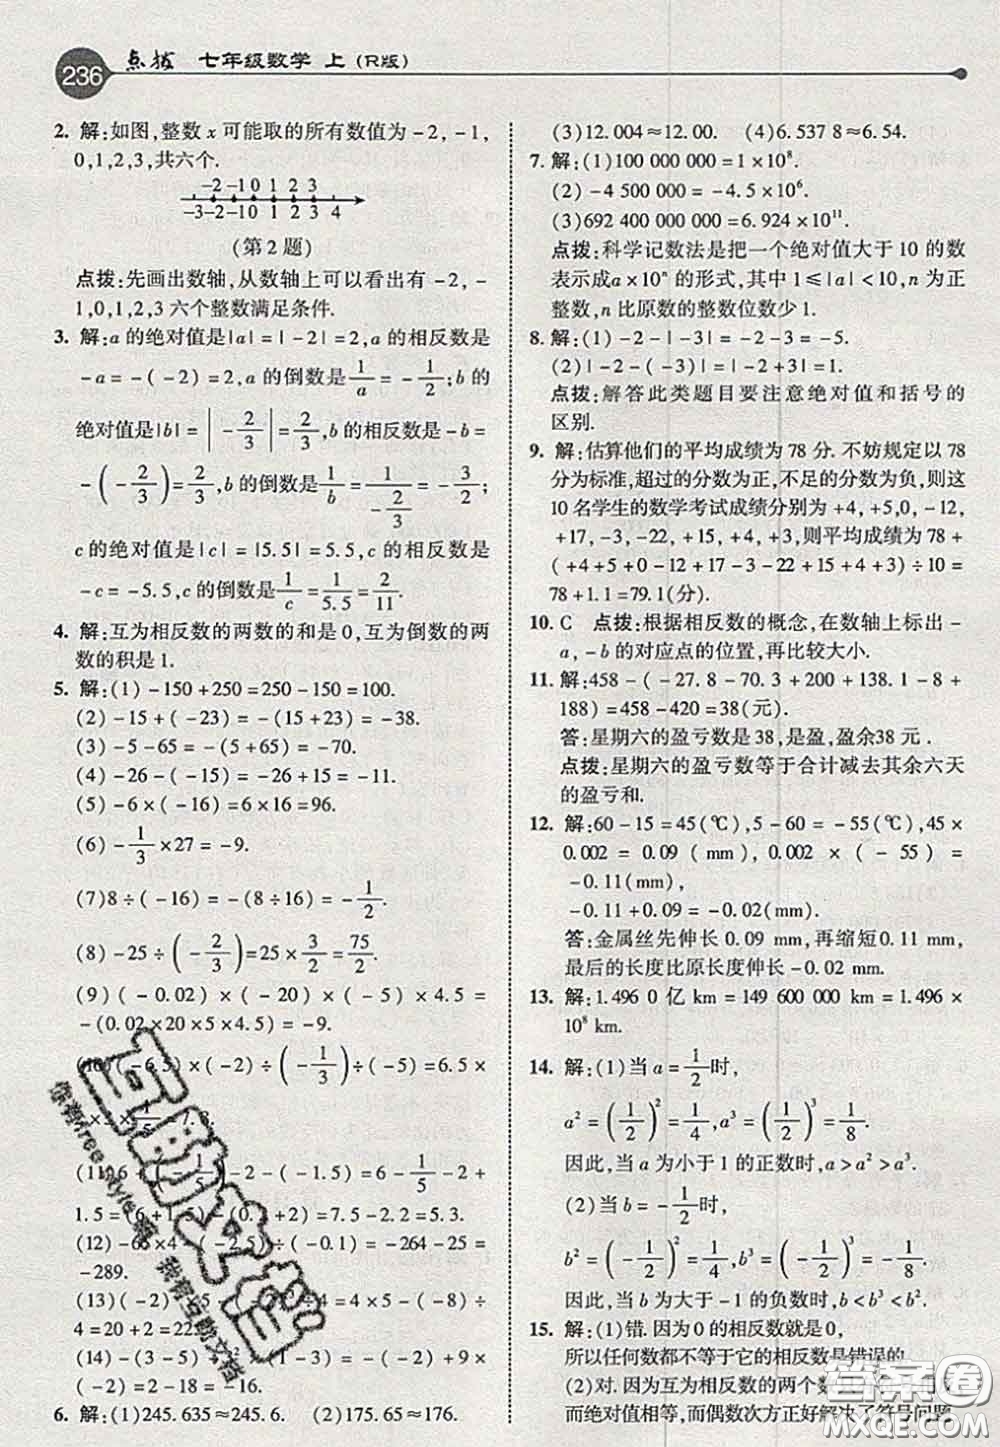 236 点拨 七年级数学 上(R版)
2. 解:如图,整数 x 可能取的所有数值为 -2, -1,
0,1,2,3,共六个.
-2 -1 0 1 2 3
-3 -2 -1 0 1 2 3 4
(第2题)
点拨:先画出数轴,从数轴上可以看出有 -2,
-1,0,1,2,3 六个整数满足条件.
3. 解:a 的绝对值是|a|=|-2|=2,a 的相反数是
-a=-(-2)=2,a 的倒数是1/a=-1/2;b 的
绝对值是|b|=|-2/3|=2/3,b 的相反数是-b=
-(-2/3)=2/3,b 的倒数是1/b=1/(-2/3)=-3/2;
c 的绝对值是|c|=|5.5|=5.5,c 的相反数是
-c=-5.5,c 的倒数是1/c=1/5.5=2/11.
4. 解:互为相反数的两数的和是 0,互为倒数的两
数的积是 1.
5. 解:(1)-150+250=250-150=100.
(2)-15+(-23)=-(15+23)=-38.
(3)-5-65=-(5+65)=-70.
(4)-26-(-15)=-26+15=-11.
(5)-6×(-16)=6×16=96.
(6)-1/3×27=-9.
(7)8÷(-16)=-(8÷16)=-1/2.
(8)-25÷(-2/3)=25×3/2=75/2.
(9)(-0.02)×(-20)×(-5)×4.5=
-(0.02×20×5×4.5)=-9.
(10)(-6.5)×(-2)÷(-1/3)÷(-5)=6.5×
(11)6+(-1/5)-2-(-1.5)=6-1/5-2+
1.5=(6+1.5)-(0.2+2)=5.3.
(12)-66×4-(-2.5)÷(-0.1)=-264-25=
-289.
(13)(-2)²×5-(-2)³÷4=4×5-(-8)÷
4=20+2=22.
(14)-(3-5)+3²×(1-3)=-(-2)+9×
(-2)=2-18=-16.
6. 解:(1)245.635≈245.6. (2)175.65≈176.
(3)12.004≈12.00. (4)6.537 8≈6.54.
7. 解:(1)100 000 000=1×10⁸.
(2)-4 500 000=-4.5×10⁶.
(3)692 400 000 000=6.924×10¹¹.
点拨:科学记数法是把一个绝对值大于 10 的数
表示成a×10ⁿ 的形式,其中 1≤|a|<10,n 为正
整数,n 比原数的整数位数少 1.
8. 解:(1)-2-|-3|=-2-3=-5.
(2)|-2-(-3)|=|-2+3|=1.
点拨:解答此类题目要注意绝对值和括号的
区别.
9. 解:估算他们的平均成绩为 78 分.不妨规定以 78
分为标准,超过的分数为正,不足的分数为负,则这
10 名学生的数学考试成绩分别为 +4,+5,0,-12,
+17,-3,-22,+15,+4,+3,则平均成绩为 78+
(+4+5+0-12+17-3-22+15+4+3)÷10=
78+1.1=79.1(分).
10. C 点拨:根据相反数的概念,在数轴上标出 -
a,-b 的对应点的位置,再比较大小.
11. 解:458-(-27.8-70.3+200+138.1-8+
188)=458-420=38(元).
答:星期六的盈亏数是 38,是盈,盈余38 元.
点拨:星期六的盈亏数等于合计减去其余六天
的盈亏和.
12. 解:60-15=45(℃),5-60=-55(℃),45×
0.002=0.09(mm),0.002×(-55)=
-0.11(mm),
-0.11+0.09=-0.02(mm).
答:金属丝先伸长 0.09 mm,再缩短0.11 mm,
最后的长度比原长度伸长 -0.02 mm.
13. 解:1.496 0 亿 km=149 600 000 km=1.496×
10⁸ km.
14. 解:(1)当 a=1/2时,
a²=(1/2)²=1/4,a³=(1/2)³=1/8.
因此,当 a 为小于 1 的正数时,a>a²>a³.
(2)当 b=-1/2时,
b²=(-1/2)²=1/4,b³=(-1/2)³=-1/8.
因此,当 b 为大于 -1 的负数时,b<b³<b².
15. 解:(1)错.因为 0 的相反数就是 0,
所以任何数都不等于它的相反数是错误的.
(2)对.因为互为相反数的两个数
而绝对值相等,而偶数次方正好解决了符号问题
答案圈
MXQE.COM